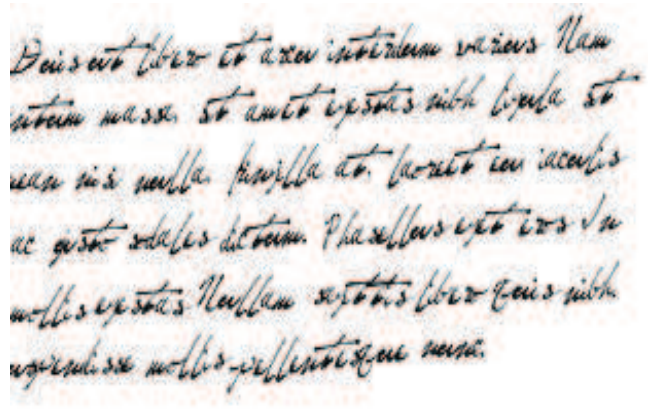 libero et arcu interdum varius Nam
massa. st amet egstas nibh ligula st
nis nulla. fringilla at. laoreet eu iaculis
ac gusto sodales dictum. Phasellus eget eros In
mollis egstas Nullam libero Quis nibh.
mollis pellentisque nunc.